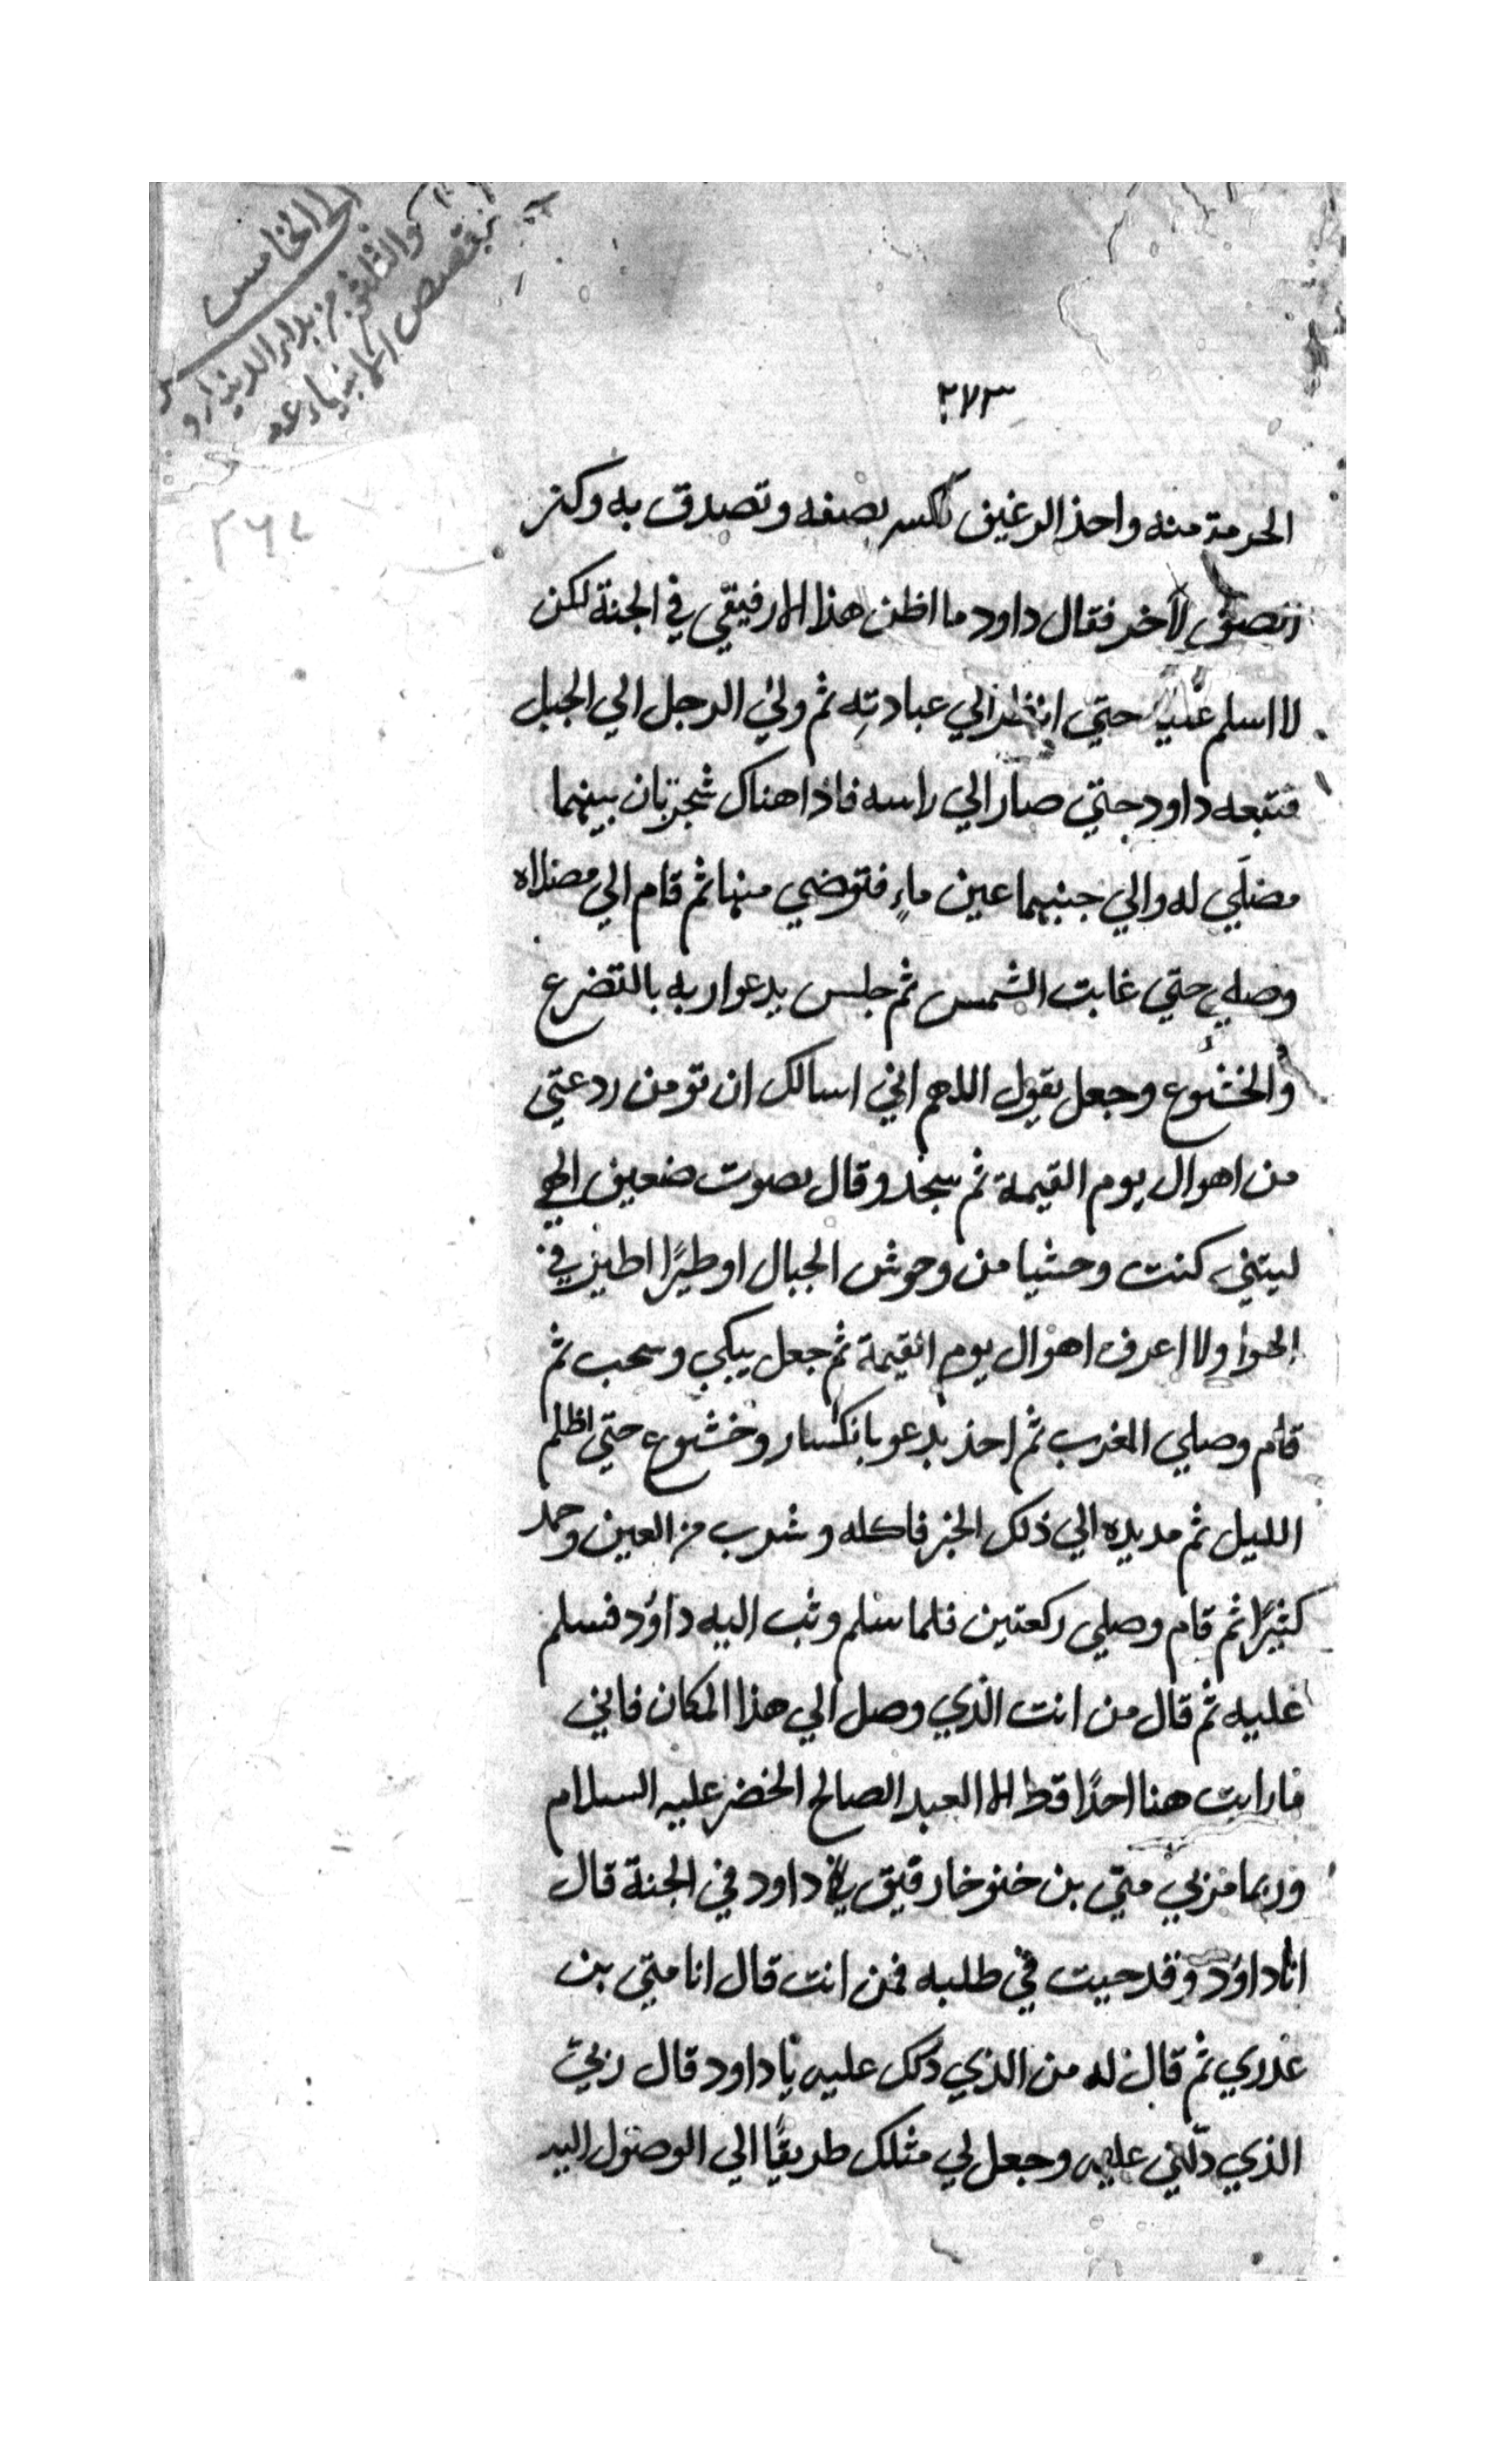 الخامس
والثلثون من بداء الدنيا و
قصص الانبياء عم
٢٧٣
٢٦٢
الحرمة منه واخذ الرغيف فكسر نصفه وتصدق به وكنز
النصف لآخر فقال داود ما اظن هذا الا رفيقي في الجنة لكن
لا اسلم عليه حتي انظر الي عبادته ثم ولي الرجل الي الجبل
فتبعه داود حتي صار الي راسه فاذا هناك شجرتان بينهما
مصلي له والي جنبيهما عين ماء فتوضي منها ثم قام الي مصلاه
وصلي حتي غابت الشمس ثم جلس يدعوا ربه بالتضرع
والخشوع وجعل يقول اللهم اني اسالك ان تومن ردعتي
من اهوال يوم القيمة ثم سجد وقال بصوت ضعيف الهي
ليتني كنت وحشيا من وحوش الجبال او طيرًا اطير في
الهوا ولا اعرف اهوال يوم القيمة ثم جعل يبكي وينحب ثم
قام وصلي المغرب ثم اخذ يدعو بانكسار وخشوع حتي اظلم
الليل ثم مد يده الي ذلك الخبز فاكله وشرب من العين وحمد
كثيرًا ثم قام وصلي ركعتين فلما سلم وثب اليه داوُد فسلم
عليه ثم قال من انت الذي وصل الي هذا المكان فاني
ما رايت هنا احدًا قط الا العبد الصالح الخضر عليه السلام
وربما مر بي متي بن خنوخا رفيق داود في الجنة قال
انا داوُد وقد جيت في طلبه فمن انت قال انا متي بن
عذري ثم قال له من الذي دلك عليه يا داود قال ربي
الذي دلّني عليه وجعل لي مثلك طريقًا الي الوصول اليه